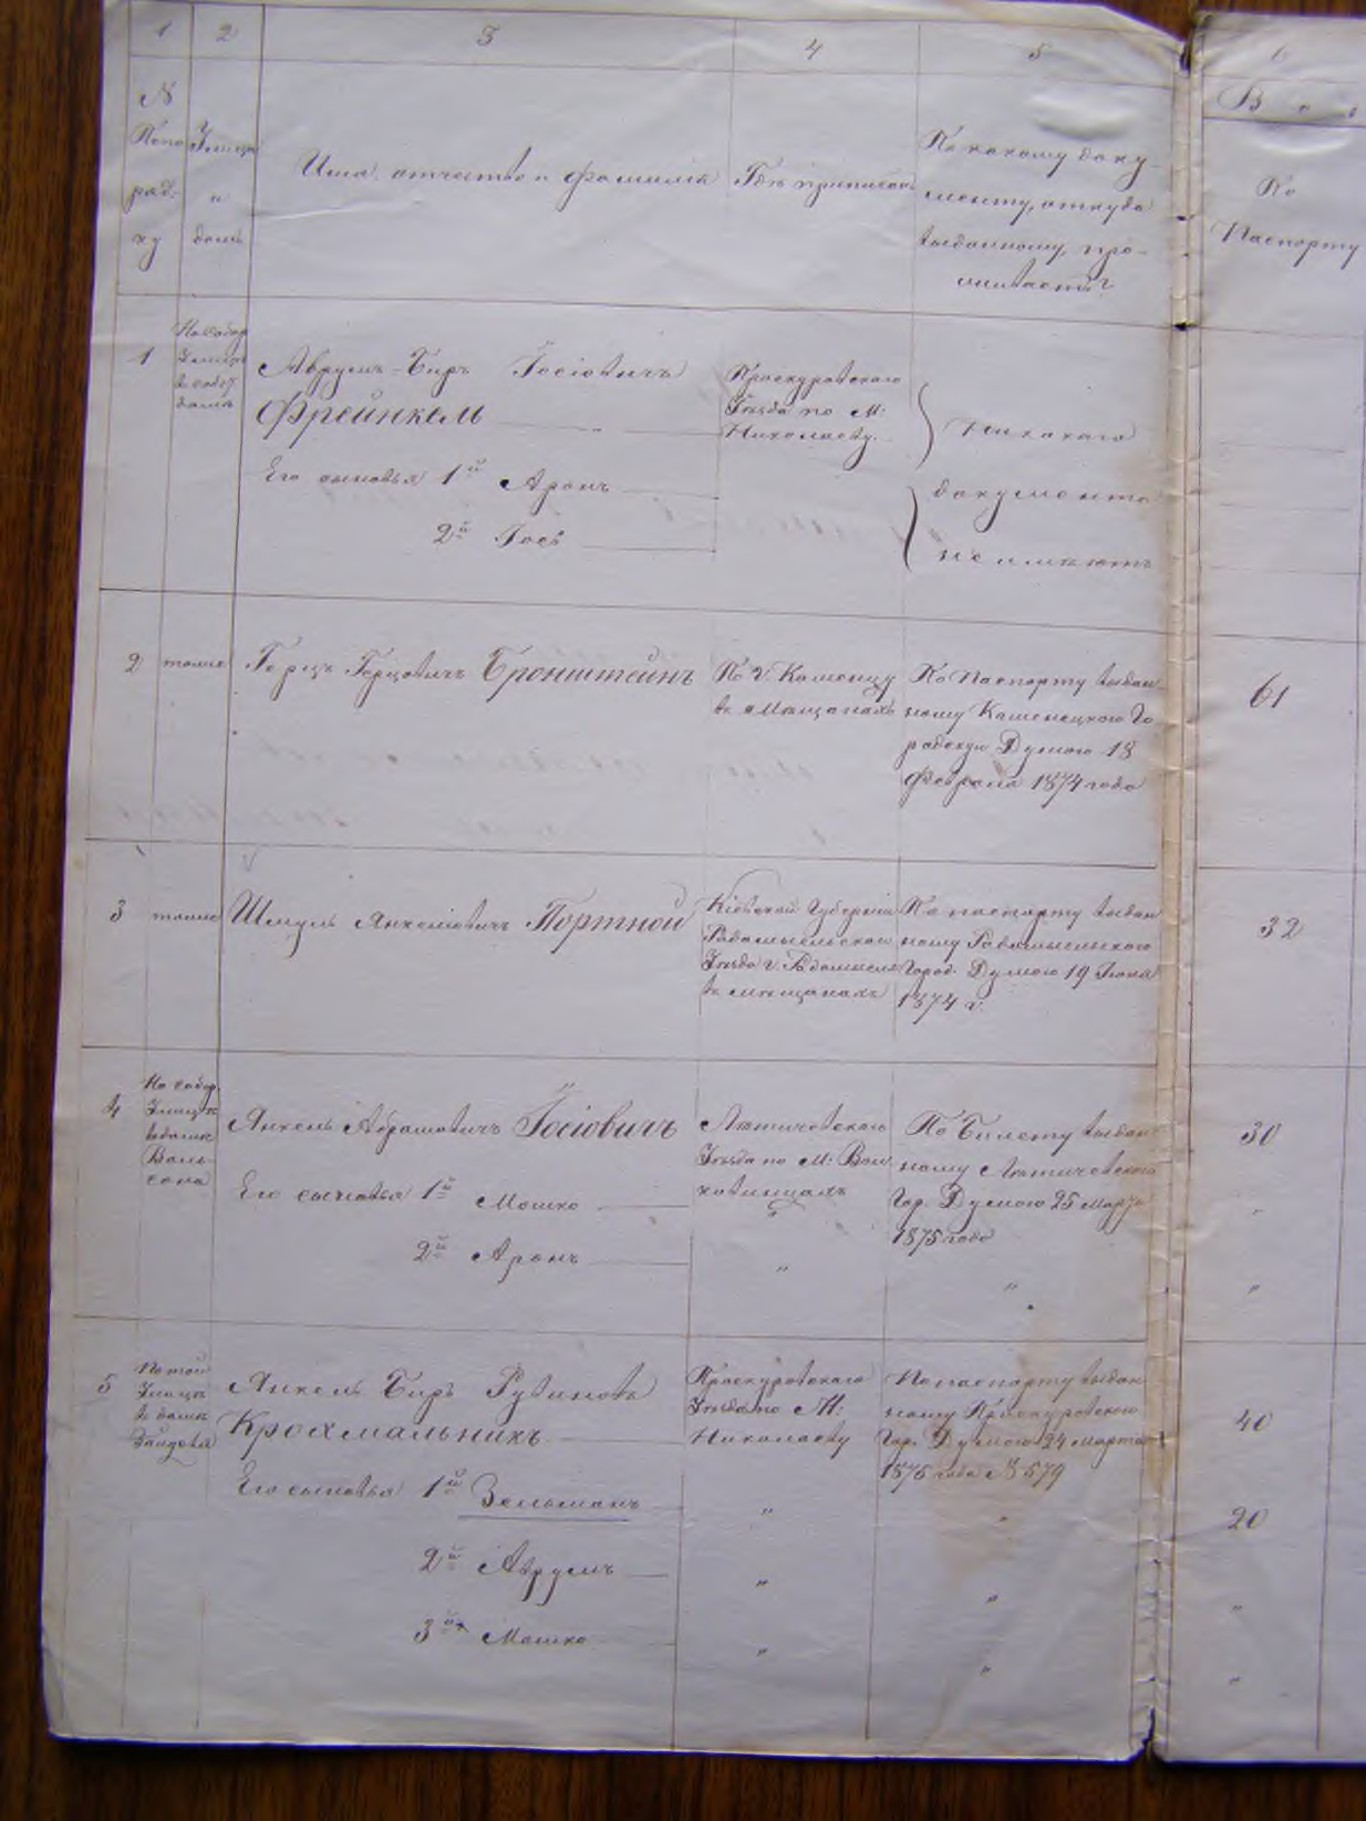 1 2 3 4 5 6
№ По по ряд- ку
Улица и домъ
Имя отчество и фамилія
Гдѣ приписанъ
По какому доку-
менту, откуда
выданному, про-
живаетъ?
В о
По
Паспорту
1
Улицѣ
домѣ
Аврумъ-Беръ Іосіовичъ
Фрейнкель
Его сыновья 1й Аронъ
2й Іось
Проскуровскаго
Уѣзда по М:
Николаеву.
Никакаго
документа
не имѣютъ
2 тоже
Герцъ Герцовичъ Бронштейнъ
По г. Каменцу
въ мѣщанахъ
По Паспорту выдан-
ному Каменецкою Го
родскую Думою 18
Февраля 1874 года
61
3 тоже
Шмуль Янкелювичъ Портной
Кіевской Губерніи
Радомысльскаго
Уѣзда г. Радомысль
въ мѣщанахъ
По паспорту выдан
ному Радомысльскою
Город. Думою 19 Іюня
1874 г.
32
4
По собор.
Улицѣ
въ домѣ
Янкель Абрамовичъ Іосіовичъ
Его сыновья 1й Мошко
2й Аронъ
Летичевскаго
Уѣзда по М: Вол
ковинцамъ
"
По Билету выдан
ному Летичевскою
Гор. Думою 25 Марта
1875 года
"
30
"
"
5
По той
Улицѣ
въ домѣ
Зайдова
Янкель Беръ Рувиновъ
Крохмальникъ
Его сыновья 1й Зельманъ
2й Аврумъ
3й Мошко
Проскуровскаго
Уѣзда по М:
Николаеву
"
"
"
По паспорту выдан
ному Проскуровскою
Гор. Думою 24 Марта
1875 года № 579
"
"
"
40
20
"
"